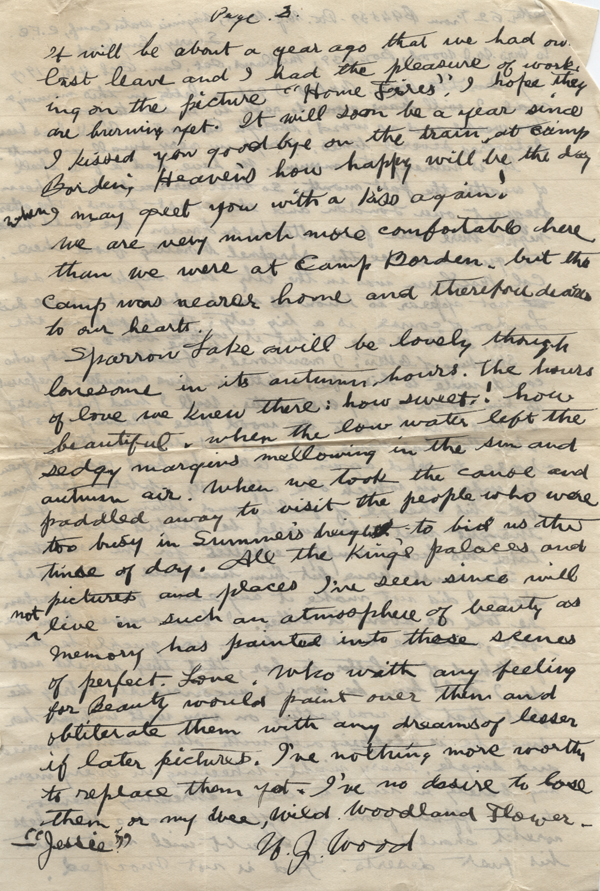 Page 3.
It will be about a year ago that we had our
last leave and I had the pleasure of work-
ing on the picture "Home Fires". I hope they
are burning yet. It will soon be a year since
I kissed you goodbye on the train, at Camp
Borden, Heavens how happy will be the day
when I may greet you with a kiss again!
We are very much more comfortable here
than we were at Camp Borden. but the
camp was nearer home and therefore dearer
to our hearts.
Sparrow Lake will be lovely though
lonesome in its autumn hours. The hours
of love we knew there: how sweet! how
beautiful. when the low water left the
sedgy margins mellowing in the sun and
autumn air. When we took the canoe and
paddled away to visit the people who were
too busy in Summer's height to bid us the
time of day. All the King's palaces and
pictures and places I've seen since will
not live in such an atmosphere of beauty as
memory has painted into those scenes
of perfect Love. Who with any feeling
for Beauty would paint over them and
obliterate them with any dreams of lesser
if later pictures. I've nothing more worthy
to replace them yet. I've no desire to lose
them, or my wee, wild Woodland Flower -
"Jessie"
W. J. Wood